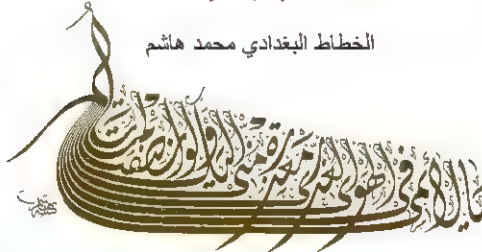 الخطاط البغدادي محمد هاشم
يا لائمي في الهوى العذري معذرة مني اليك ولو انصفت لم تلم